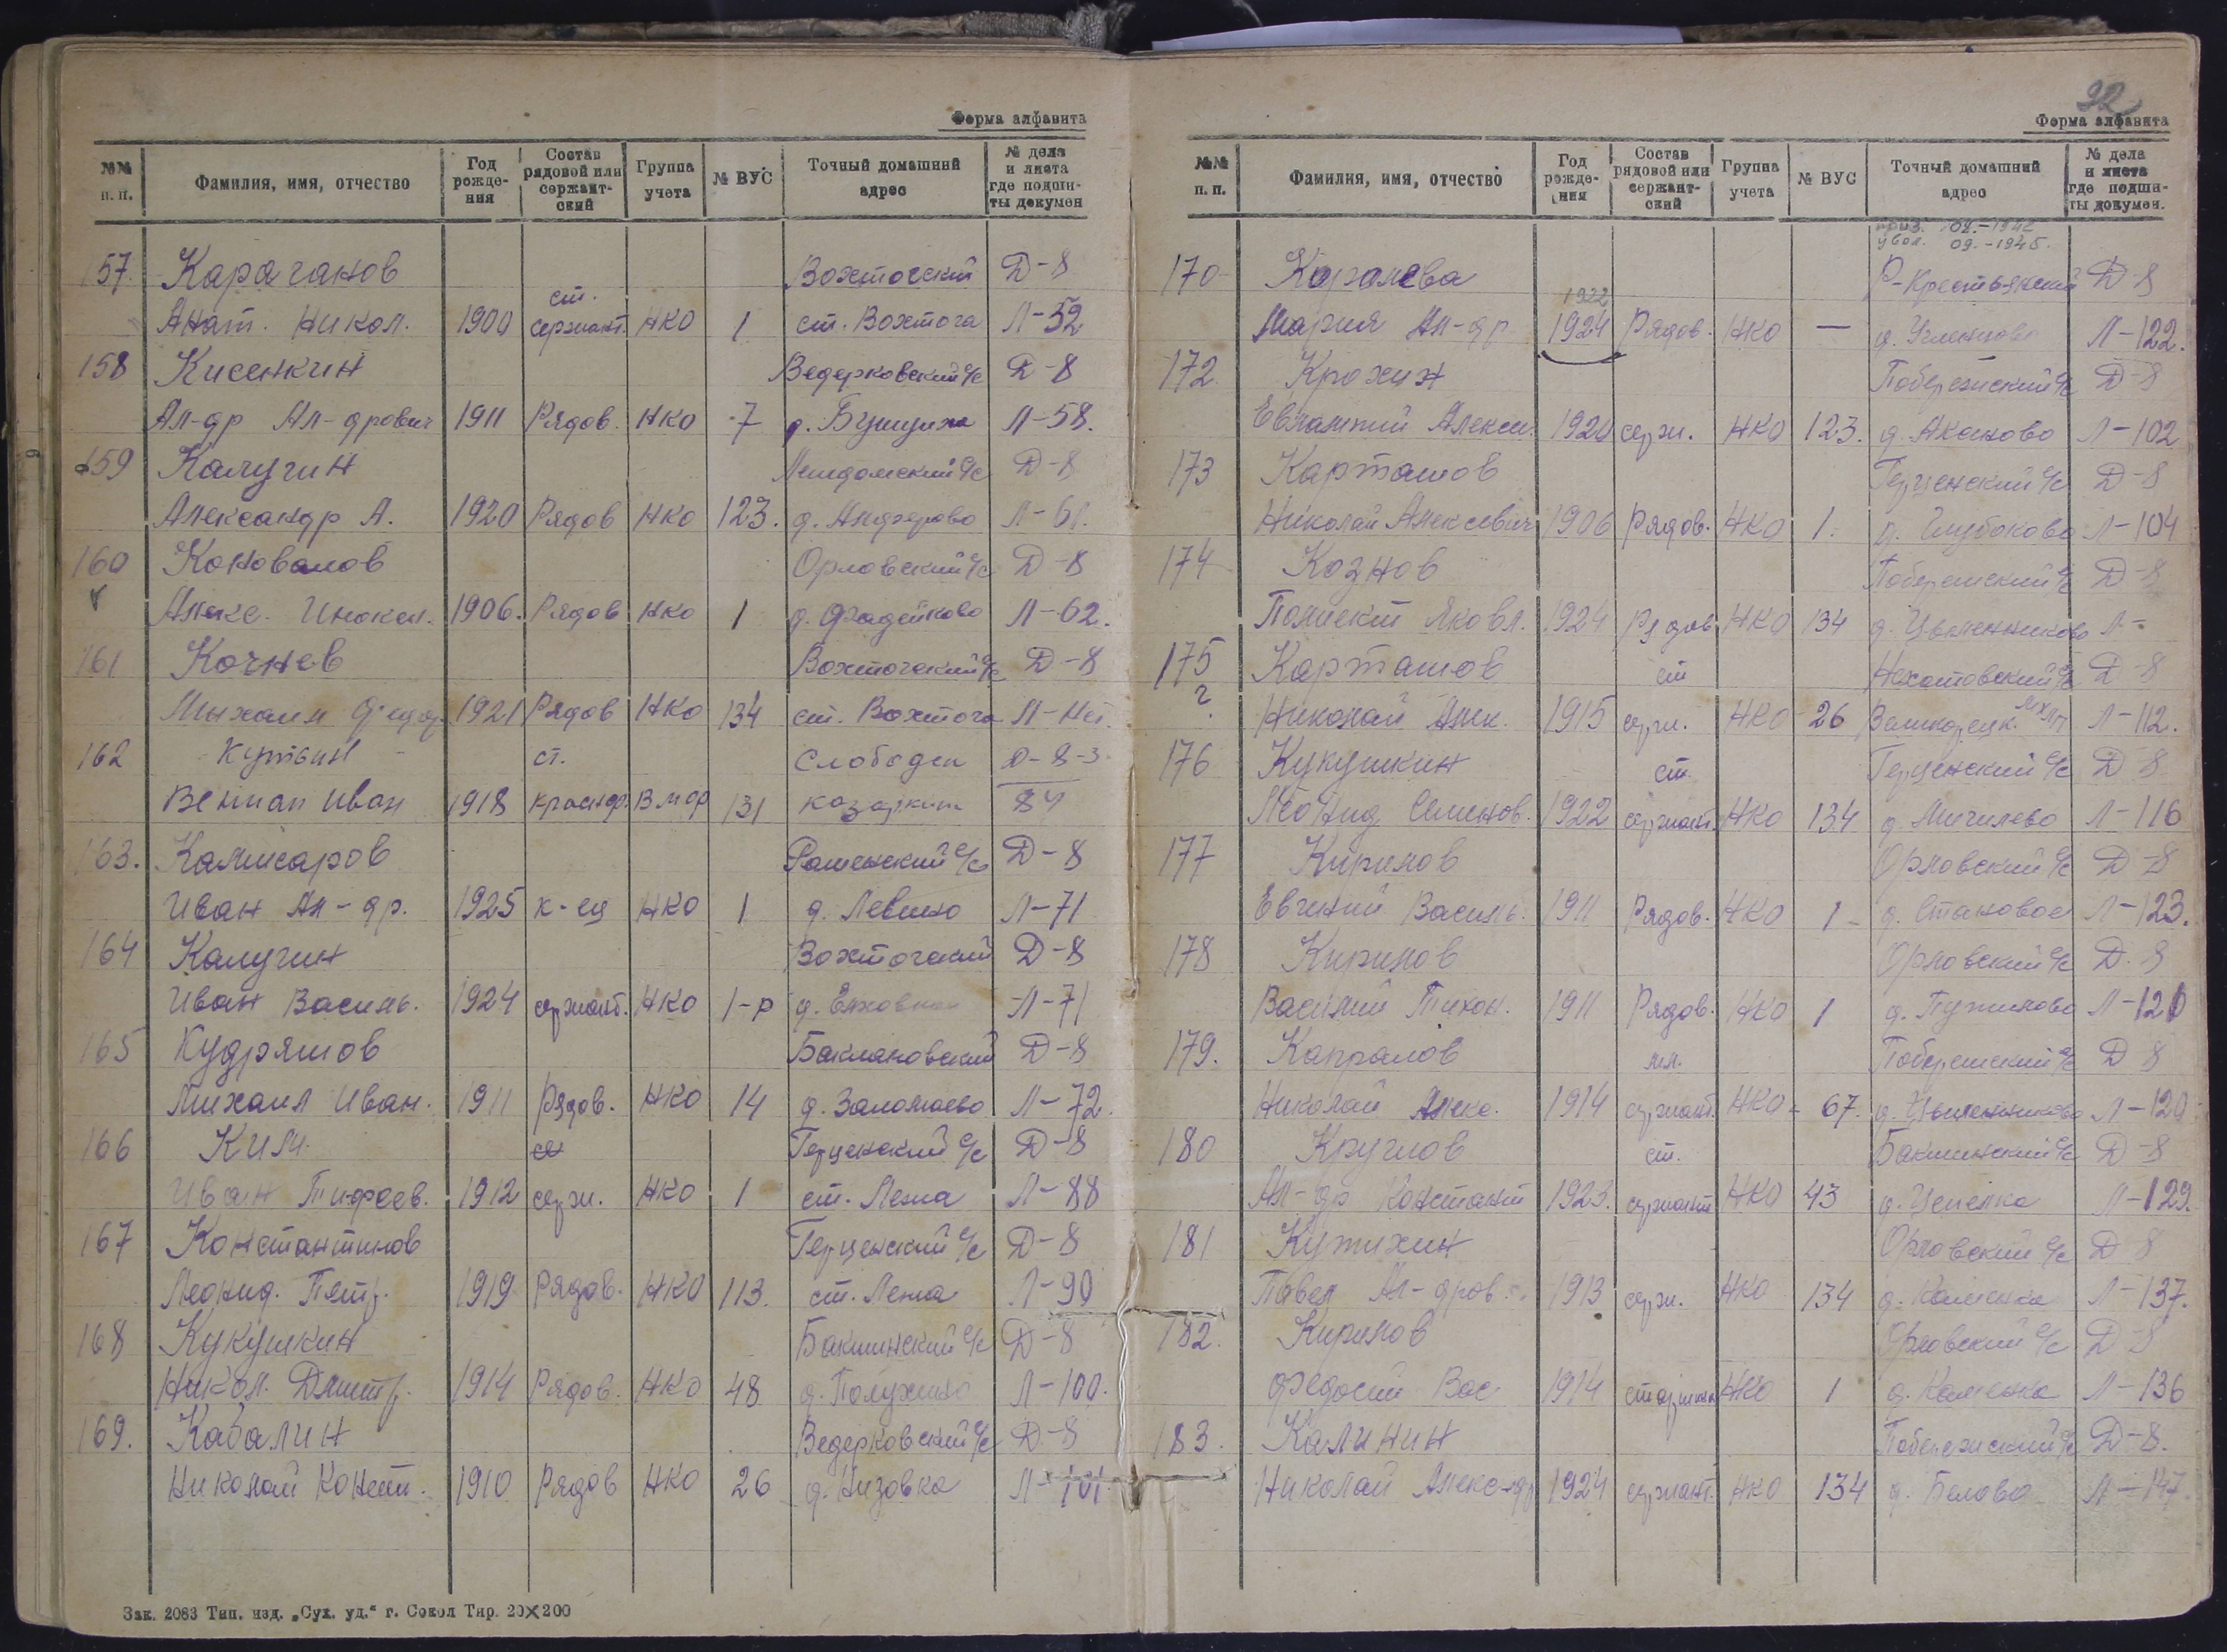 Форма алфавита
№№ п. п. Фамилия, имя, отчество Год рожде-ния Состав рядовой или сержант-ский Группа учета № ВУС Точный домашний адрес № дела и листа где подши-ты докумен
157. Карачанов Вохтогский Д-8
Анат. Никол. 1900 ст. сержант. НКО 1 ст. Вохтога Л-52
158 Кисенкин Ведерковский с/с Д-8
Ал-др Ал-дрович 1911 Рядов. НКО 7 д. Бушуиха Л-58.
159 Калугин с/с Д-8
Александр А. 1920 Рядов НКО 123. д. Анферово Л-61.
160 Коновалов Орловский с/с Д-8
Алекс. 1906. Рядов НКО 1 д. Фадейково Л-62.
161 Кочнев Вохтогский с/с Д-8
Михаил Федор. 1921 Рядов НКО 134 ст. Вохтога Л-Нет.
162 Кутьин ст. Слободен Д-8-3
Вениам Иван 1918 краснфл. ВМФ 131 84
163. Камисаров с/с Д-8
Иван Ал-др. 1925 к-ец НКО 1 д. Левино Л-71
164 Калугин Вохтогский Д-8
Иван Василь. 1924 сержант. НКО 1-р д. Л-71
165 Кудряшов Баклановский Д-8
Михаил Иван. 1911 Рядов. НКО 14 д. Заломаево Л-72.
166 Ким Герценский с/с Д-8
Иван Тифоев. 1912 серж. НКО 1 ст. Лежа Л-88
167 Константинов Герценский с/с Д-8
Леонид. Петр. 1919 Рядов. НКО 113. ст. Лежа Л-90
168 Кукушкин Бакшинский с/с Д-8
Никол. Дмитр. 1914 Рядов. НКО 48 д. Полухино Л-100.
169. Кабалин Ведерковский с/с Д-8
Николай Конст. 1910 Рядов НКО 26 д. Низовка Л-101.
Зак. 2083 Тип. изд. „Сух. уд.“ г. Сокол Тир. 20х200
92
Форма алфавита
№№ п. п. Фамилия, имя, отчество Год рожде-ния Состав рядовой или сержант-ский Группа учета № ВУС Точный домашний адрес № дела и листа где подши-ты докумен.
приз. 02.-1942
увол. 09.-1945.
170 Королева Р-Крестьянский Д-8
1922
Мария Ал-др 1924 Рядов. НКО — д. Угленцово Л-122.
172 Крохин Побережский с/с Д-8
Евлампий Алексе. 1920 серж. НКО 123. д. Аксеново Л-102
173 Карташов Герценский с/с Д-8
Николай Алексеевич 1906 Рядов. НКО 1. д. Глубоково Л-104
174 Кознов Побережский с/с Д-8
Полиект Яковл. 1924 Рядов НКО 134 д. Цыпленниково Л-
175 Карташов ст с/с Д-8
?
Николай Алек. 1915 серж. НКО 26 Великорецк. Л-112.
176 Кукушкин ст Герценский с/с Д-8
Леонид Семенов. 1922 сержант. НКО 134 д. Мичилево Л-116
177 Кирилов Орловский с/с Д-8
Евгений Василь. 1911 Рядов. НКО 1 д. Становое Л-123.
178 Кирилов Орловский с/с Д-8
Василий Тихон. 1911 Рядов. НКО 1 д. Пужилово Л-120
179. Капралов мл. Побережский с/с Д-8
Николай Алекс. 1914 сержант. НКО 67. д. Цыпленниково Л-120
180 Круглов ст. Бакшинский с/с Д-8
Ал-др Константи 1923. сержант НКО 43 д. Л-129.
181 Кутихин Орловский с/с Д-8
Павел Ал-дров. 1913 серж. НКО 134 д. Каменка Л-137.
182. Кирилов Орловский с/с Д-8
Федосий Вас 1914 старшина НКО 1 д. Каменка Л-136
183. Калинин Побережский с/с Д-8.
Николай Алекс-др 1924 сержант. НКО 134 д. Белово Л-147.